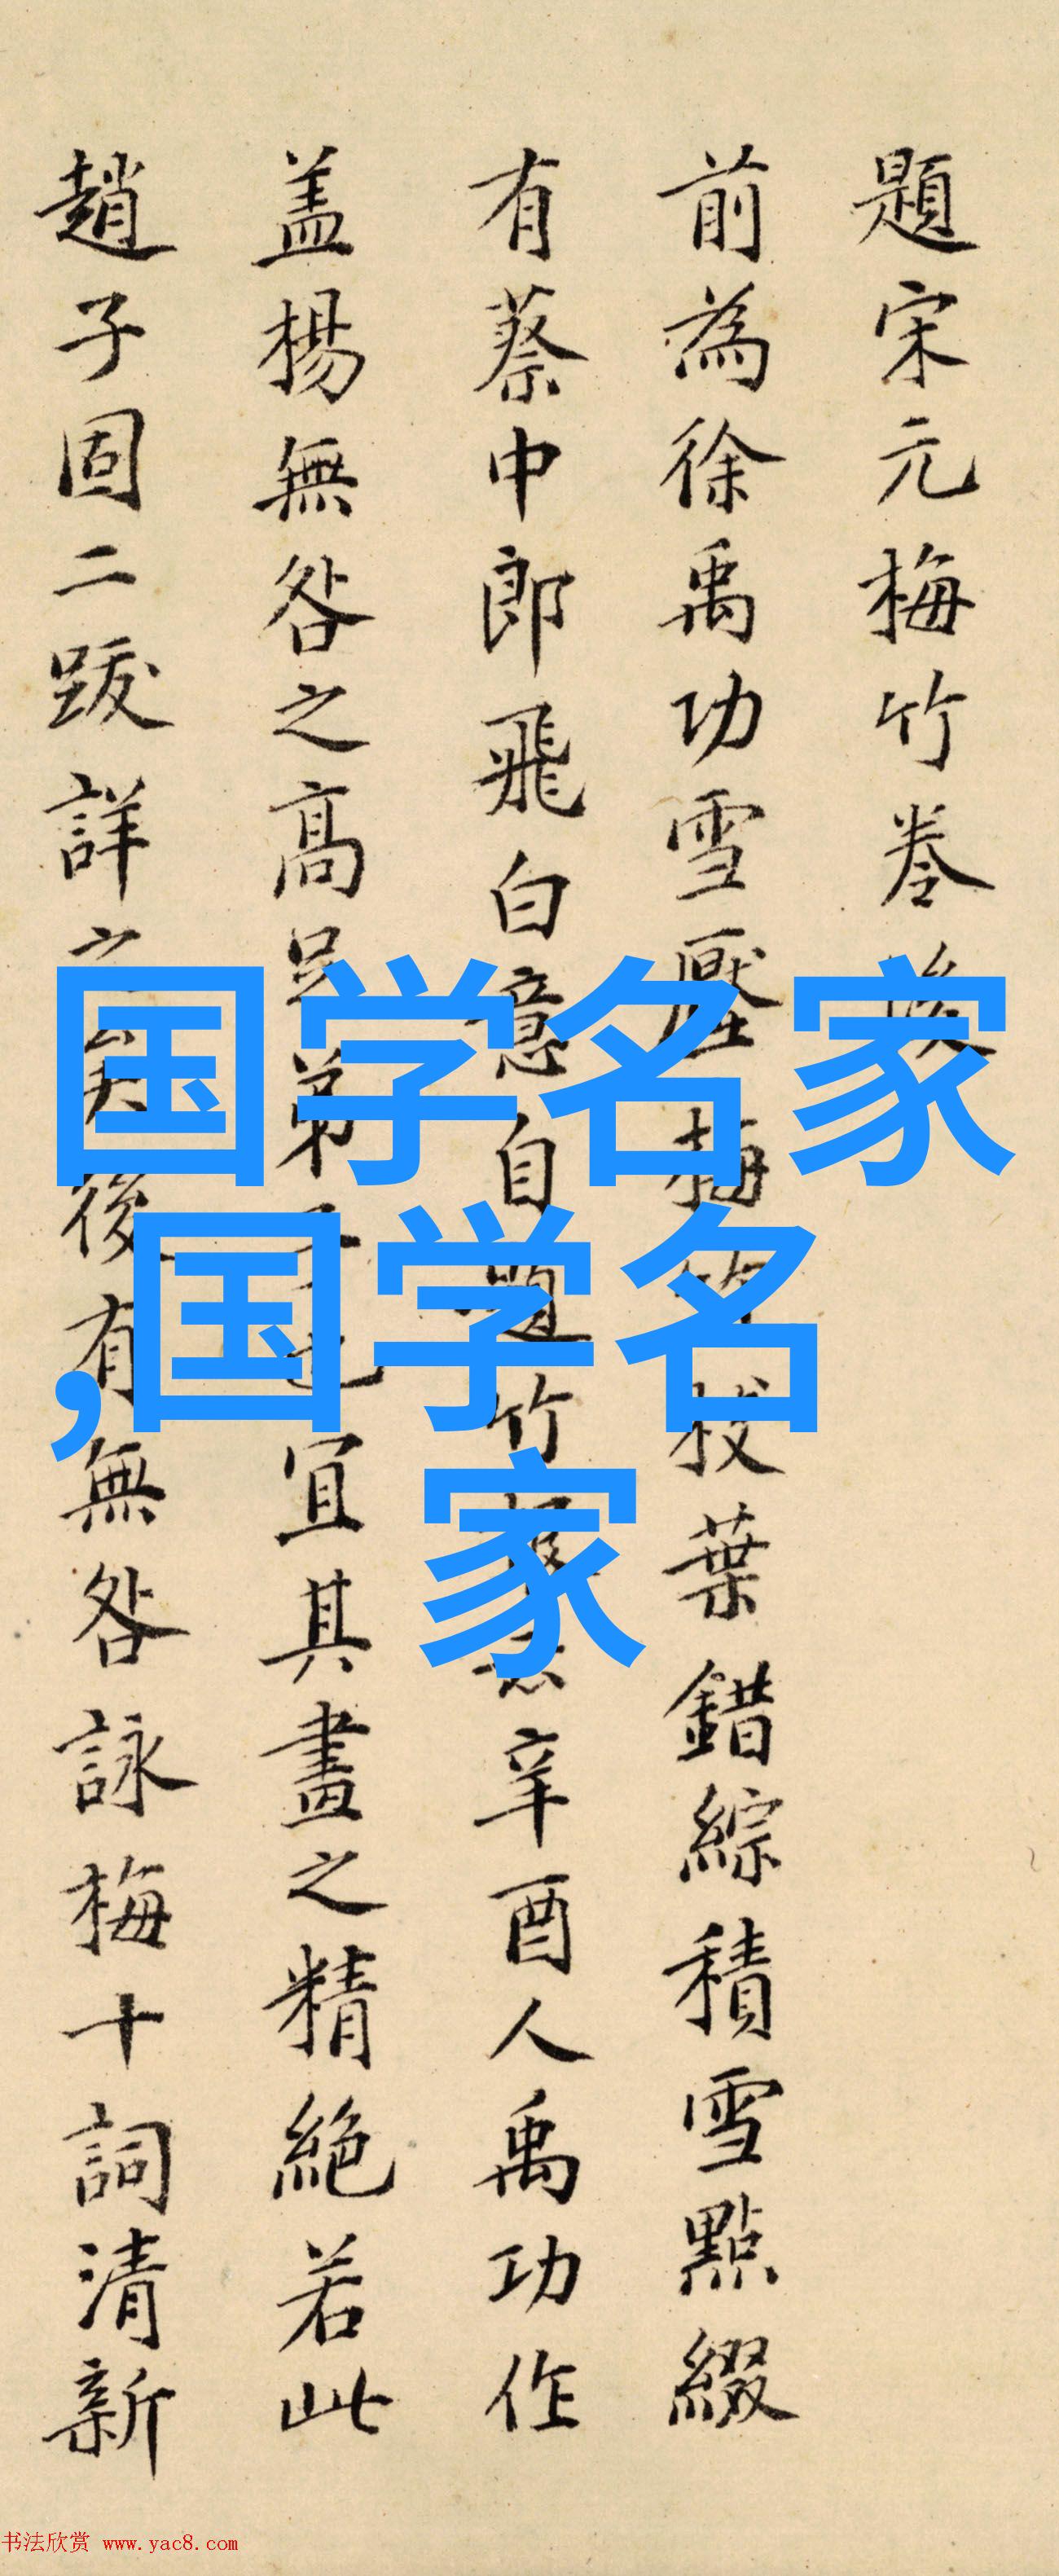 題宋元梅竹卷後
前為徐禹功雪壓梅竹枝葉錯綜積雪點綴
有蔡中郎飛白意自題竹辛酉人禹功作
盖楊無咎之高足弟子也宜其畫之精絕若此
趙子固二跋詳之矣後有無咎詠梅十詞清新
国学名家
,国学名
家
书法欣赏 www.yac8.com